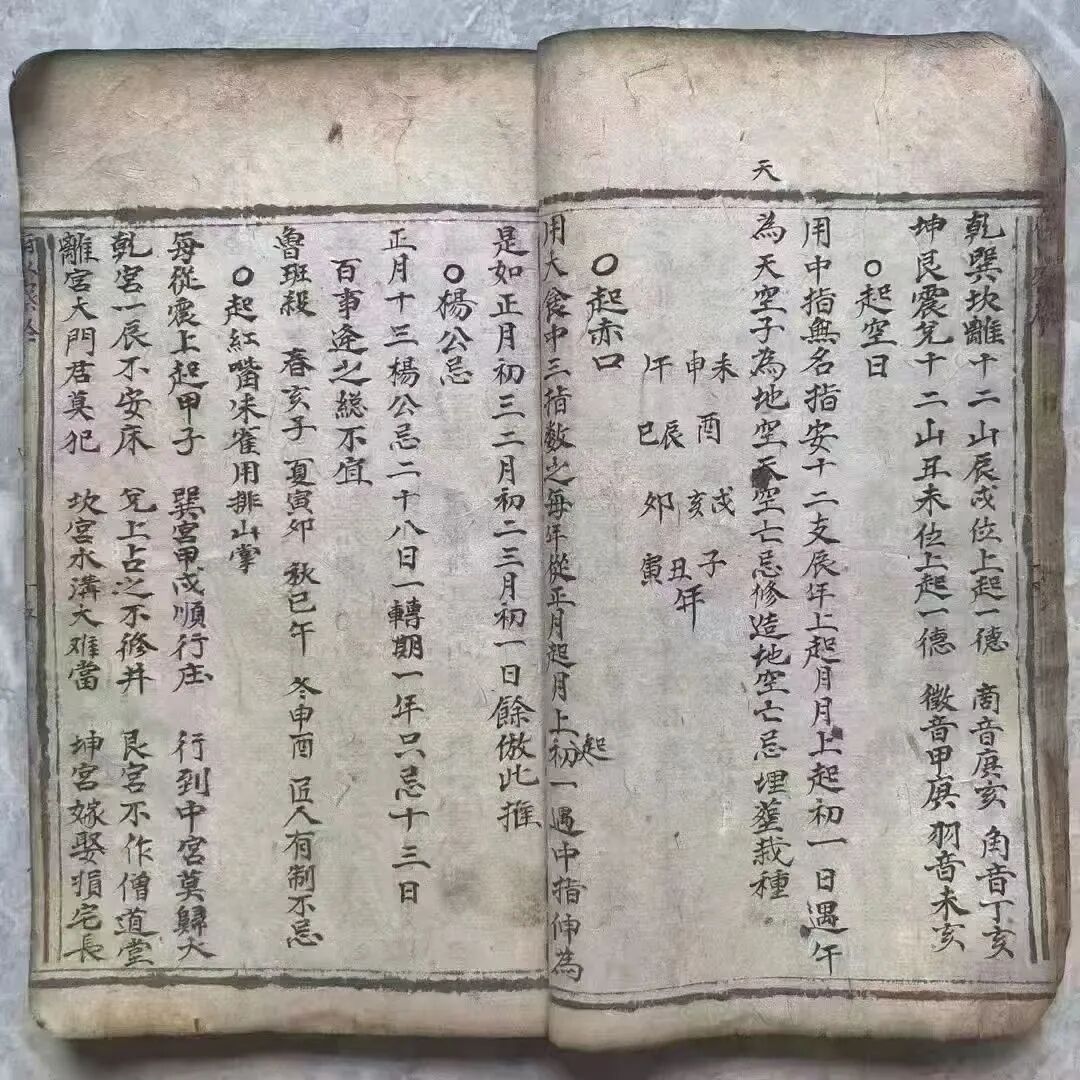 天
乾巽坎離十二山辰戌位上起一德 商音庚亥 角音丁亥
坤艮震兌十二山丑未位上起一德 徵音甲庚 羽音未亥
○起空日
用中指無名指安十二支辰年上起月月上起初一日遇午
為天空子為地空天空亡忌修造地空亡忌埋塟栽種
未 戌 子
申 酉 亥 丑年
午 辰
巳 卯 寅
○起赤口
用大餘中三指数之每年從正月起月上起初一遇中指伸為
是如正月初三二月初二三月初一日餘倣此推
○楊公忌
正月十三楊公忌二十八日一轉期一年只忌十三日
百事逢之総不宜
魯班殺 春亥子 夏寅卯 秋巳午 冬申酉 匠人有制不忌
○起紅嘴朱雀用排山掌
每從震上起甲子 巽宮甲戌順行庄 行到中宮莫歸火
乾宮一辰不安床 兌上占之不修井 艮宮不作僧道堂
離宮大門君莫犯 坎宮水溝大难當 坤宮嫁娶損宅長